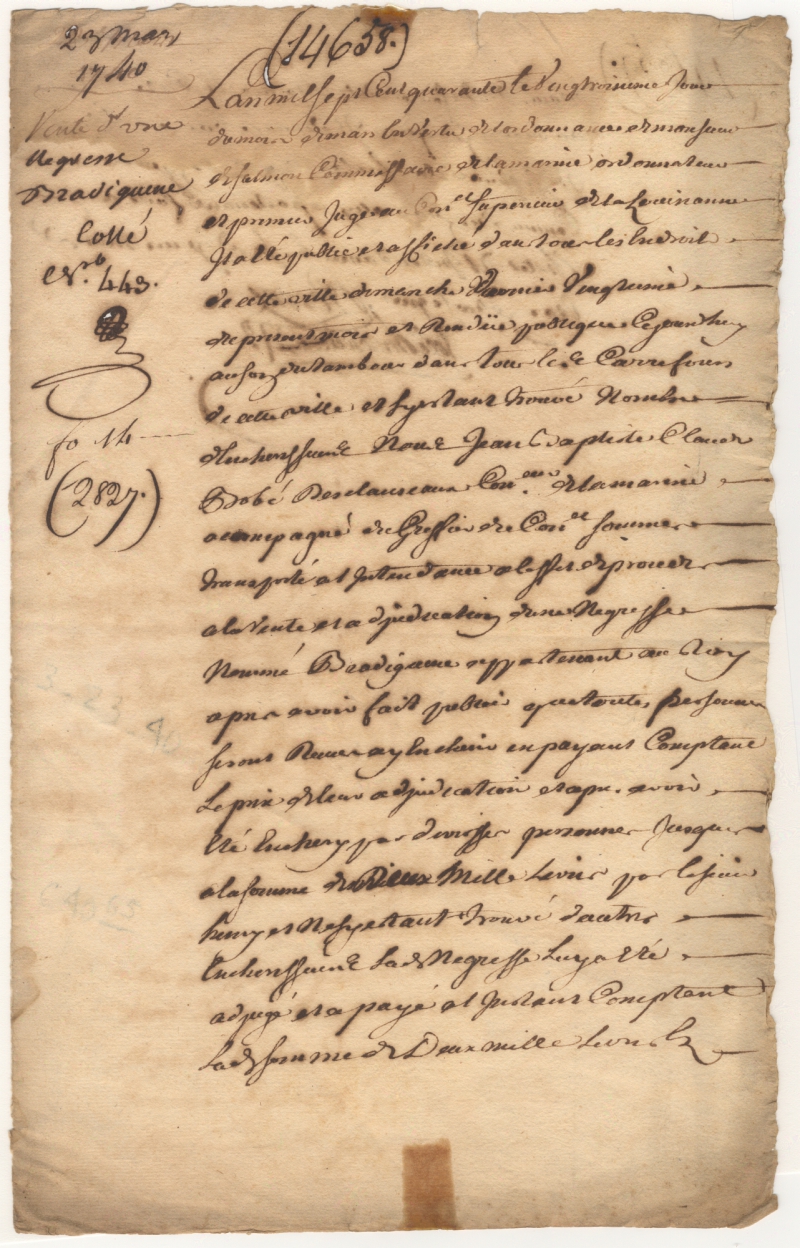 23 mars
1740
Vente d'une
negresse
Bradiguene
Cotté
N.ro 443.
fo 14
(2827.)
(14658.)
Lan mil sept Cent quarante le Vingtroisieme Jour
du mois de mars En Vertu de Lordonnance de monsieur
de salmon Commissaire de la marine ordonnateur
et premier Juge au Con.el superieur de la Louisianne
Il a été publié et affiché dans tous les Endroit
de cette ville dimanche dernier Vingtieme
du present mois et publique Cejourdhuy
au son du tambour dans tous les Carrefours
de cette ville et sy estant trouvé Nombre
d'Encherisseurs Nous Jean Baptiste Claude
Bobé Desclauseaux Con.eur de la marine
acompagné du Greffier du Con.el sommes
transporté a l Intendance a leffet de proceder
a la Vente et adjudication dune Negresse
Nommé Bradigaine appartenant au Roy
apres avoir fait publier que toutes personnes
seront Receues a y Encherir en payant Comptant
Le prix de leur adjudication et apres avoir
Eté Enchery par diverses personnes Jusques
a la somme de Deux Mille Livres par le sieur
henry et Ne sy estant trouvé dautres
Encherisseurs Lad Negresse Luy a Eté
adjugé et a payé a l Instant Comptant
Lad somme de Deux mille Livres